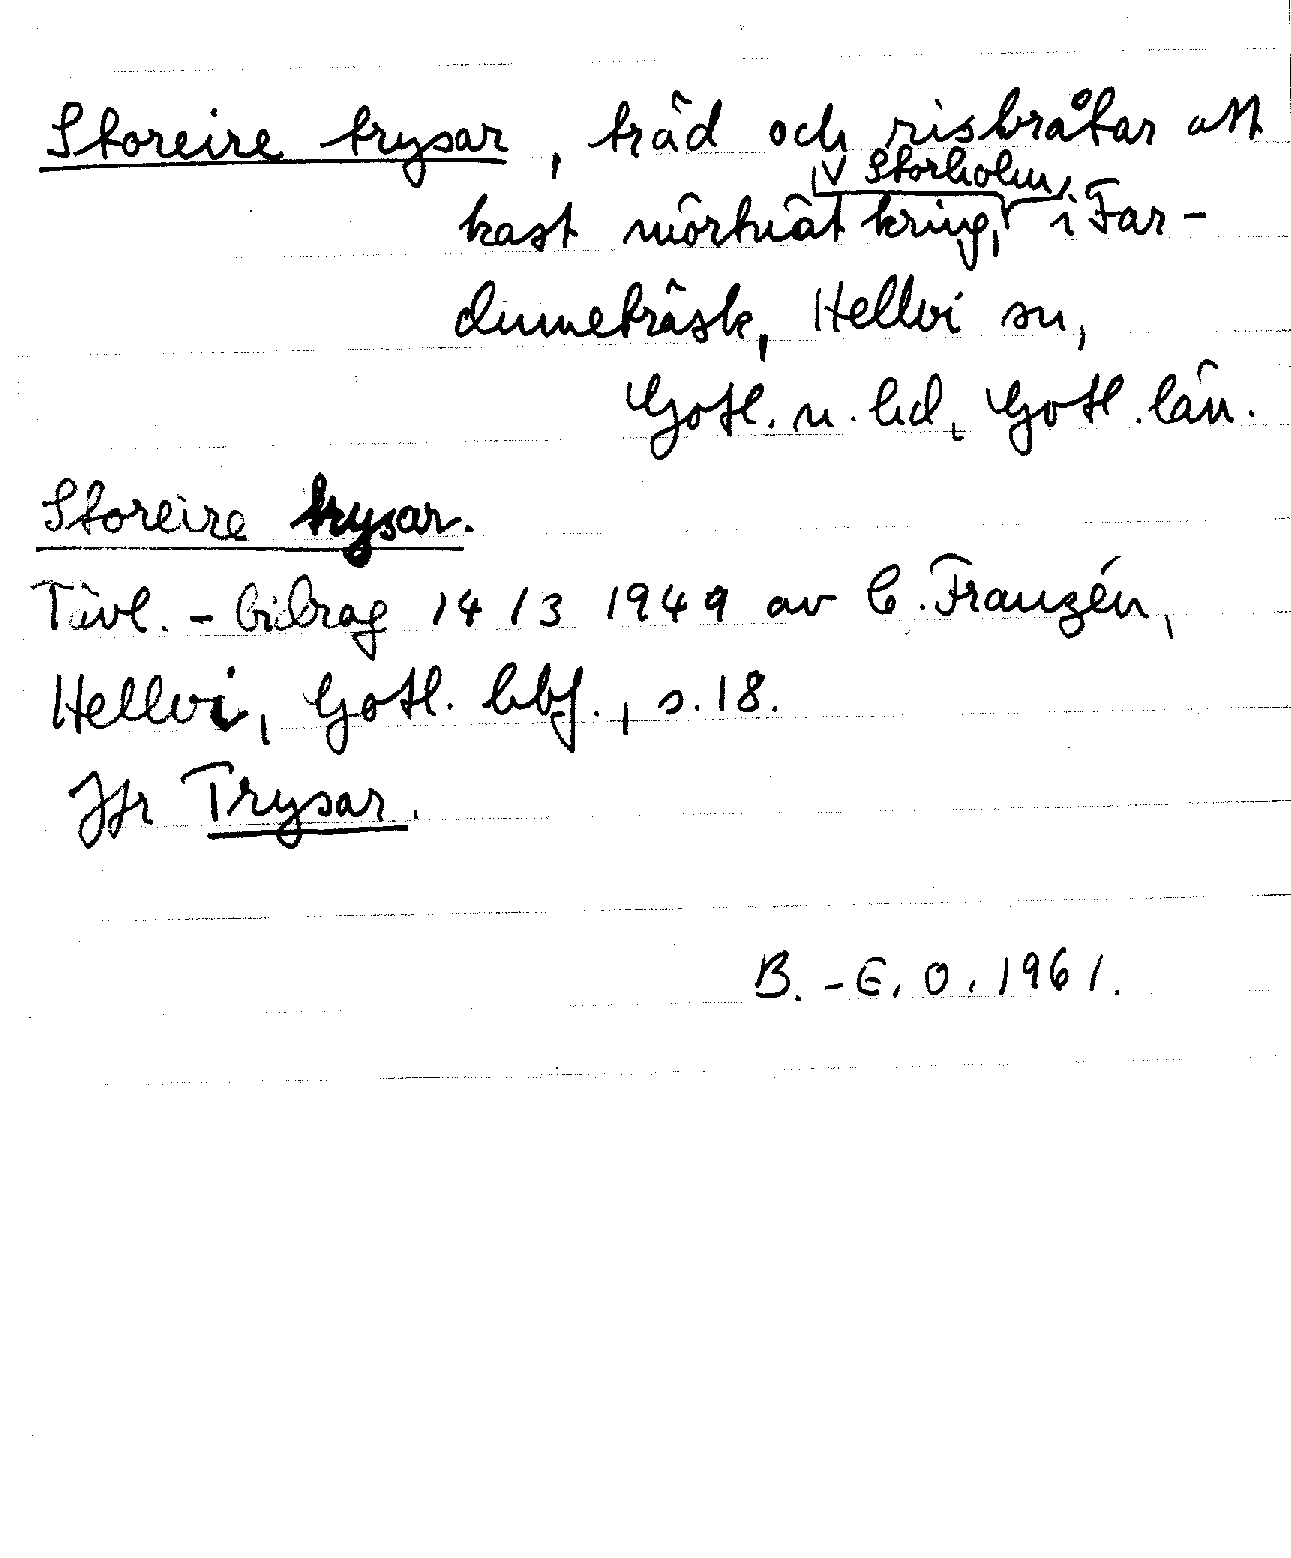 Storeire trysar, träd och risbråtar att
V Storholm,
kast mörtnät kring, i Far-
dumeträsk, Hellvi sn,
Gotl. n. hd, Gotl. län.
Storeire trysar.
Tävl.-bidrag 14/3 1949 av C. Franzén,
Hellvi, Gotl. hbf., s. 18.
Jfr Trysar.
B.-E. O. 1961.